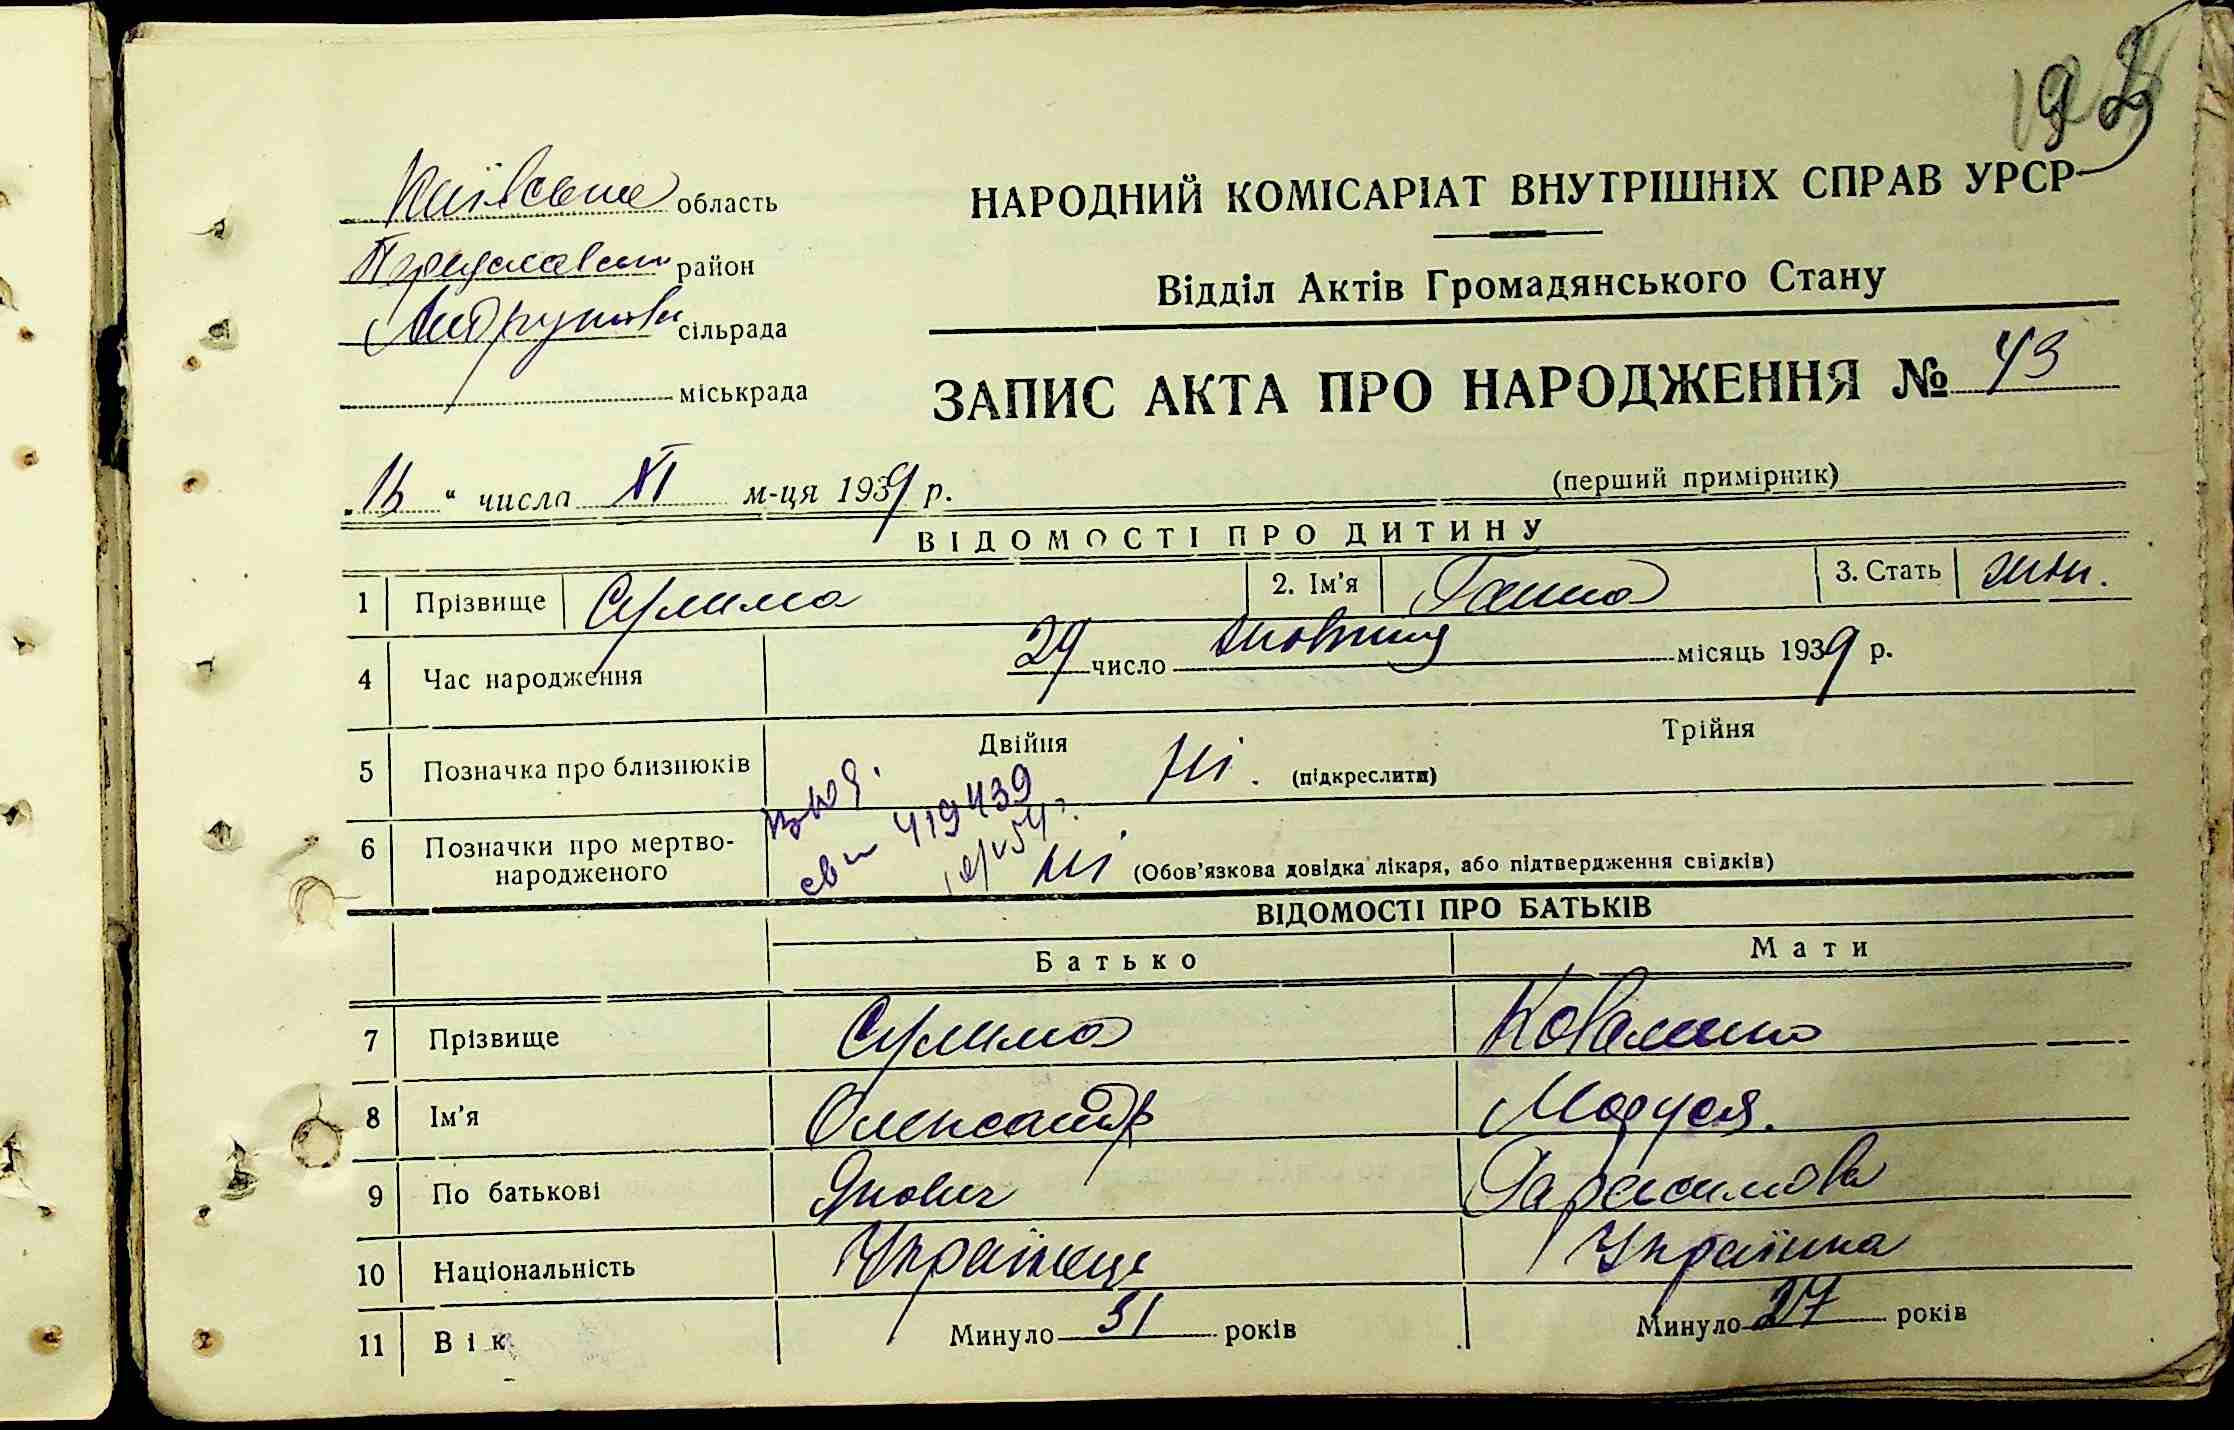 Київська область
НАРОДНИЙ КОМІСАРІАТ ВНУТРІШНІХ СПРАВ УРСР
район
Відділ Актів Громадянського Стану
сільрада
ЗАПИС АКТА ПРО НАРОДЖЕННЯ № 43
міськрада
числа XI м-ця 1939 р.
(перший примірник)
ВІДОМОСТІ ПРО ДИТИНУ
1 Прізвище Сулима 2. Ім'я Ганна 3. Стать жін.
4 Час народження 29 число жовтня місяць 1939 р.
5 Позначка про близнюків Двійня Ні. (підкреслити) Трійня
св 419439
6 Позначки про мертво-народженого ні (Обов'язкова довідка лікаря, або підтвердження свідків)
ВІДОМОСТІ ПРО БАТЬКІВ
Батько Мати
7 Прізвище Сулима
8 Ім'я Олександр Маруся.
9 По батькові Якович Гарасимовн
10 Національність Українець Українка
11 Вік Минуло 31 років Минуло 27 років